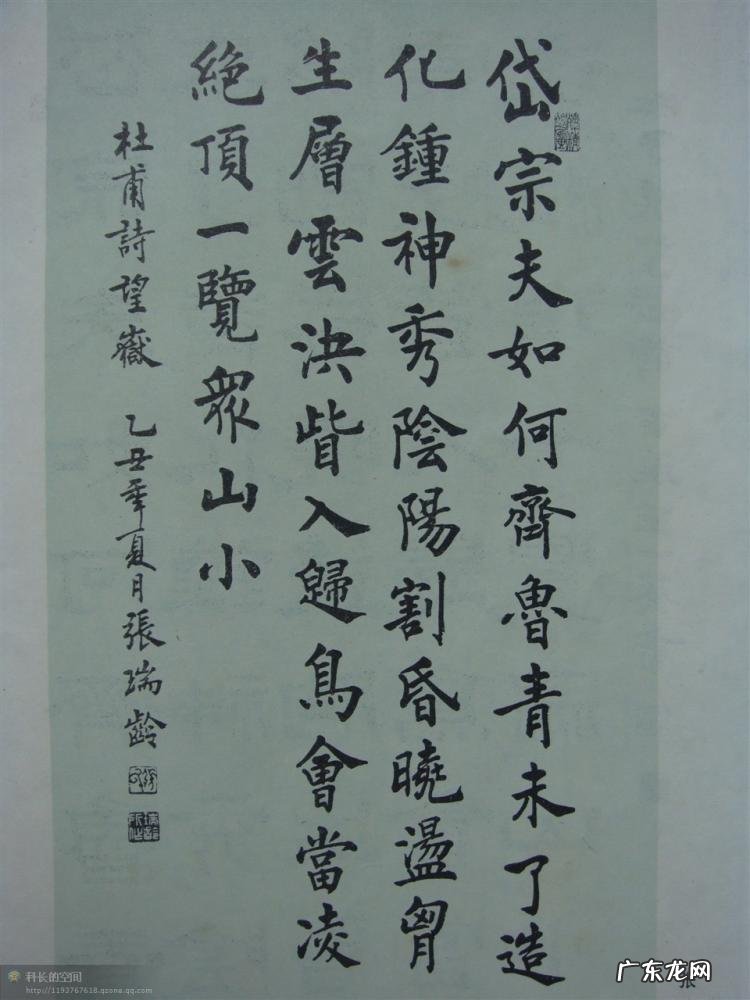 岱宗夫如何齊魯青未了造
化鍾神秀陰陽割昏曉盪胷
生層雲決眥入歸鳥會當凌
絕頂一覽眾山小
杜甫詩望嶽 乙丑年夏月張瑞齡
科长的空间
http://1193767618.qzone.qq.com
张
广东龙网